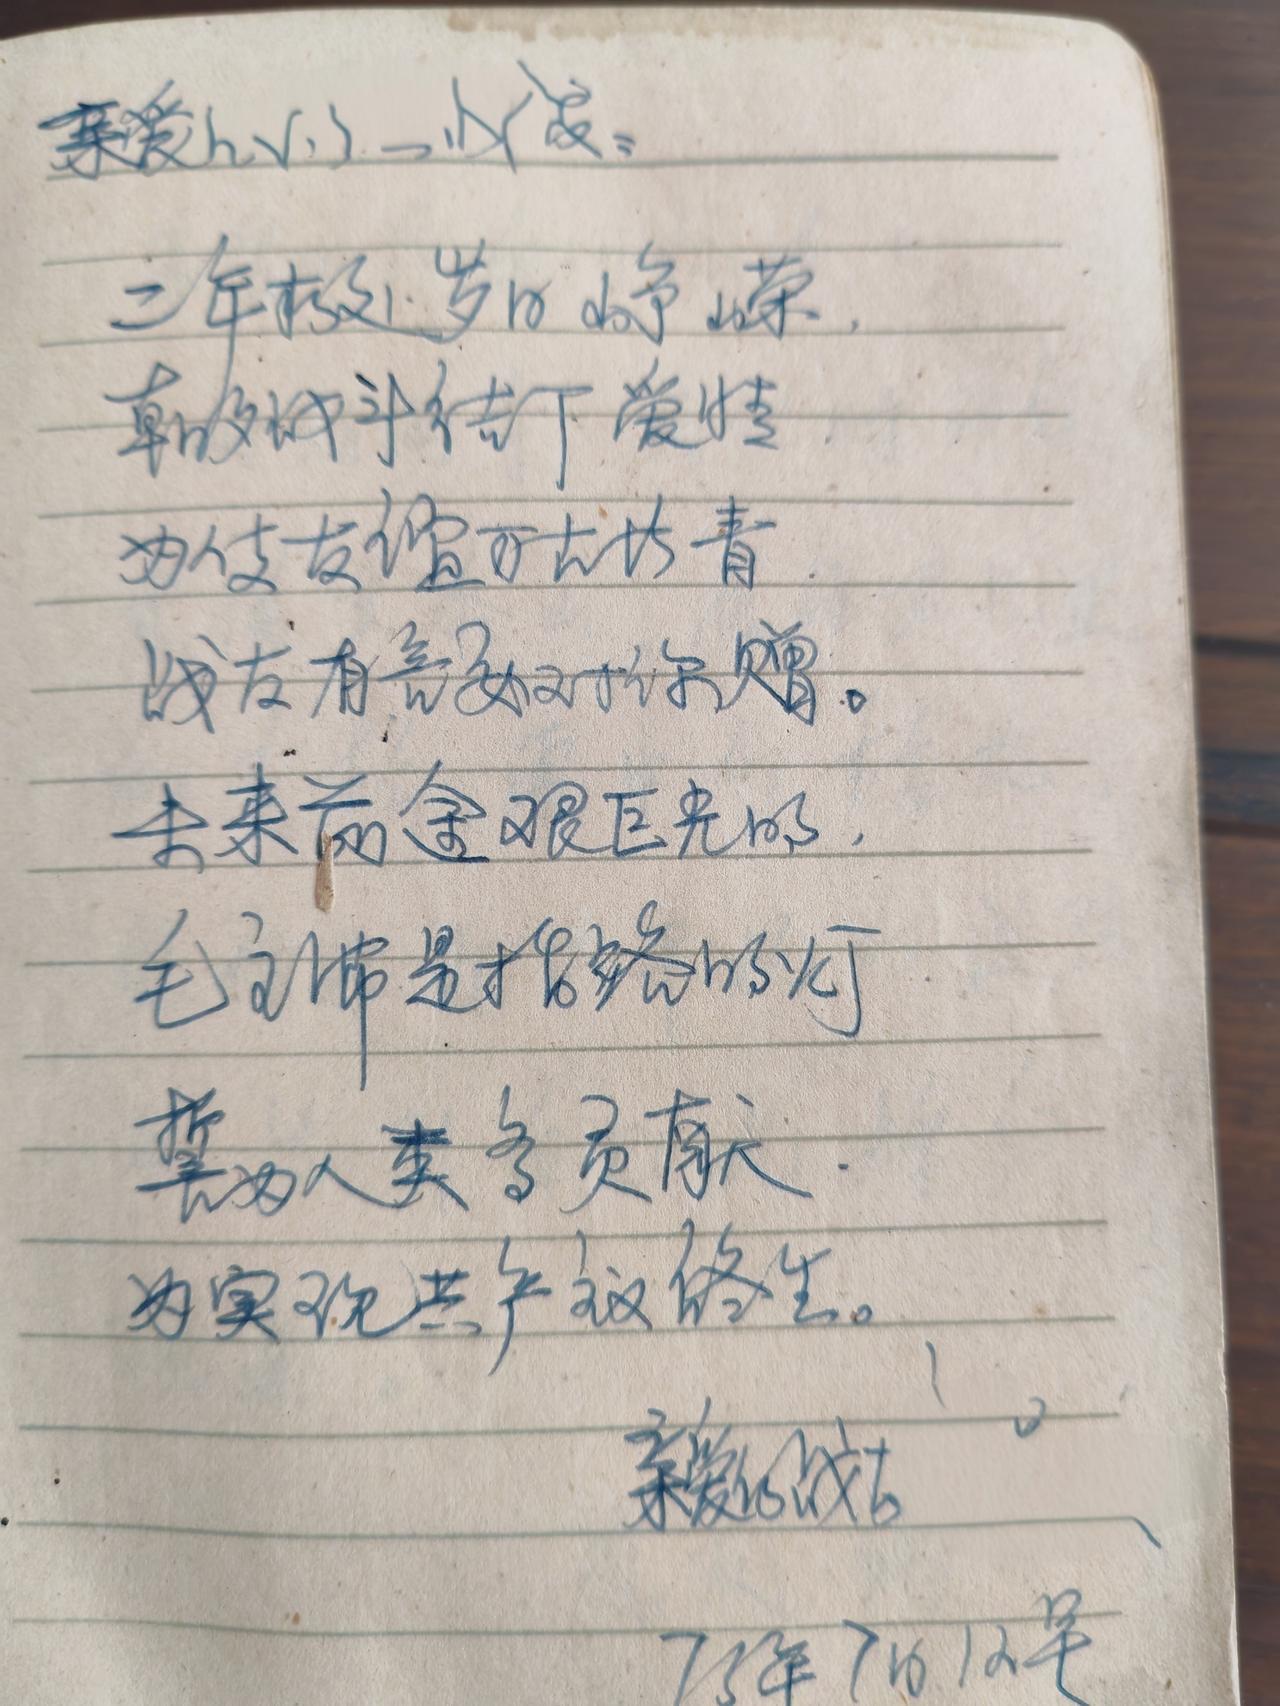 亲爱的战友:
二年校迈岁月峥嵘,
朝夕战斗结下爱情
为使友谊万古长青
战友有言要对你赠。
未来前途艰巨光明,
毛主席是指路的灯
誓为人类多贡献.
为实现共产主义终生。
亲爱的战友
75年7月12号